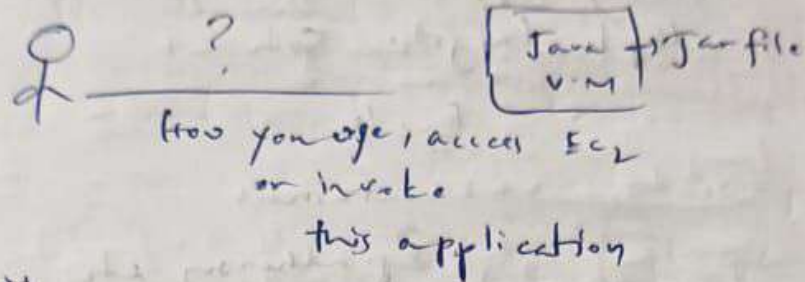 ?
Java → Jar file
V.M
How you use, access Ec2
or invoke
this application